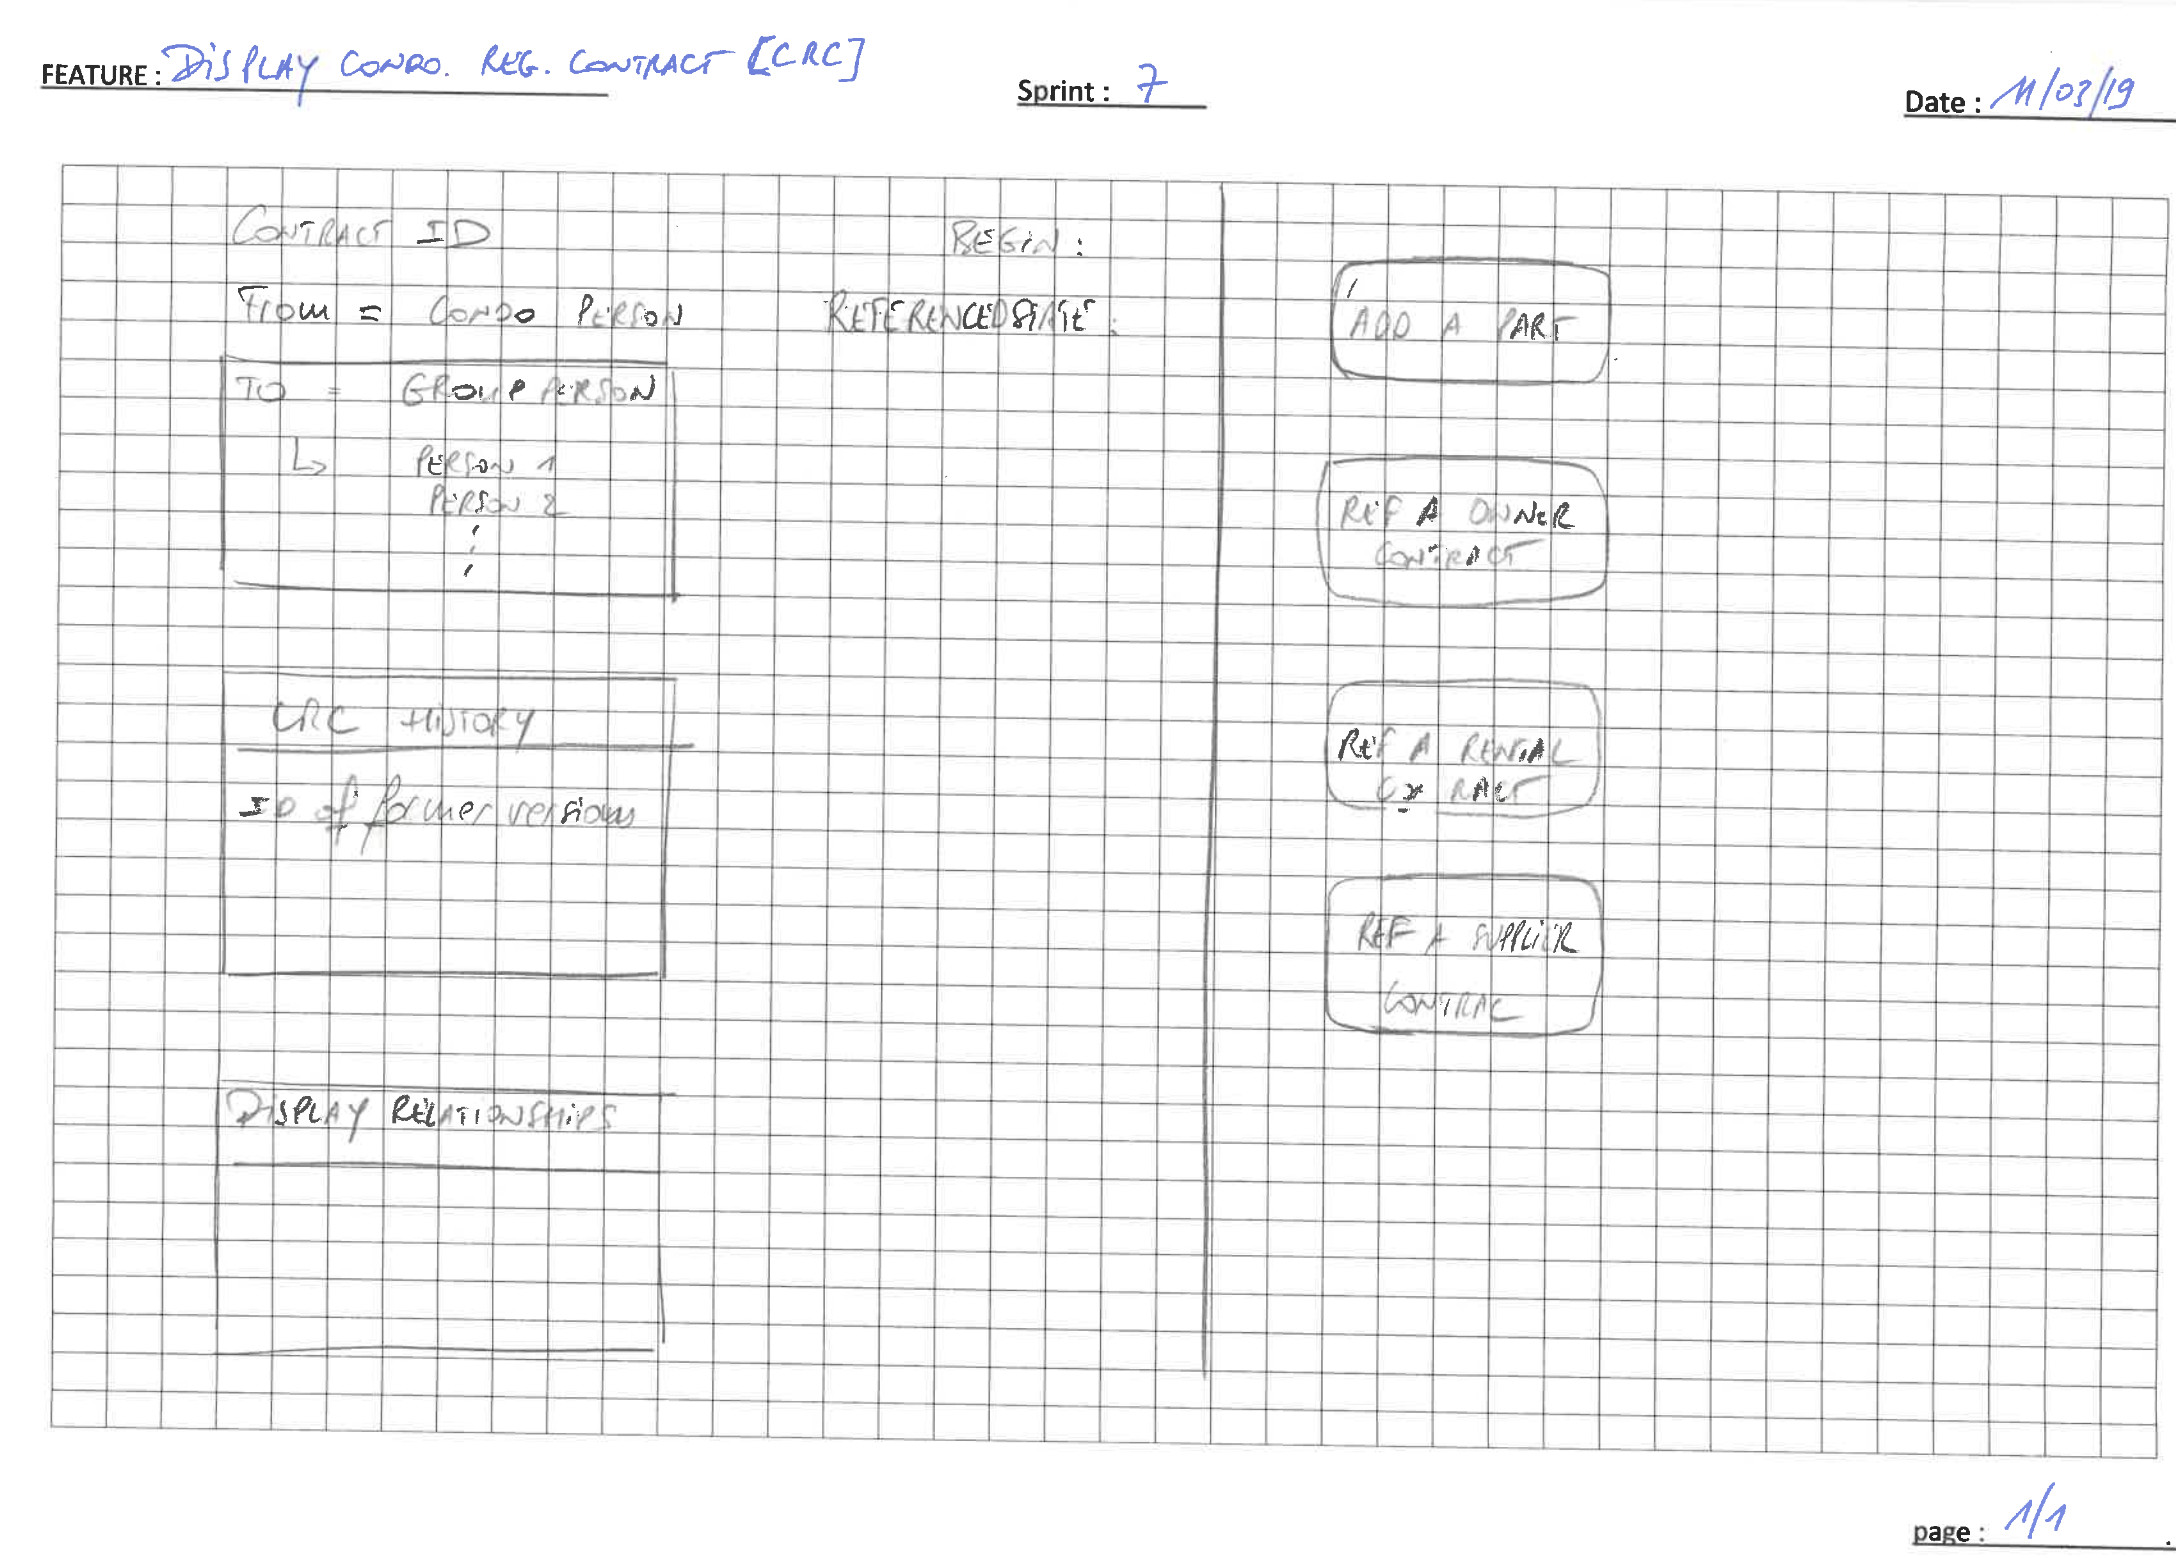 FEATURE : DISPLAY CONDO. REG. CONTRACT [CRC]
Sprint : 7
Date : 11/03/19
CONTRACT ID
BEGIN :
From = CONDO PERSON
TO = GROUP PERSON
↳ PERSON 1
PERSON 2
CRC HISTORY
ID of former versions
DISPLAY RELATIONSHIPS
ADD A PART
REF A OWNER
CONTRACT
REF A RENTAL
REF A SUPPLIER
CONTRAC
page : 1/1